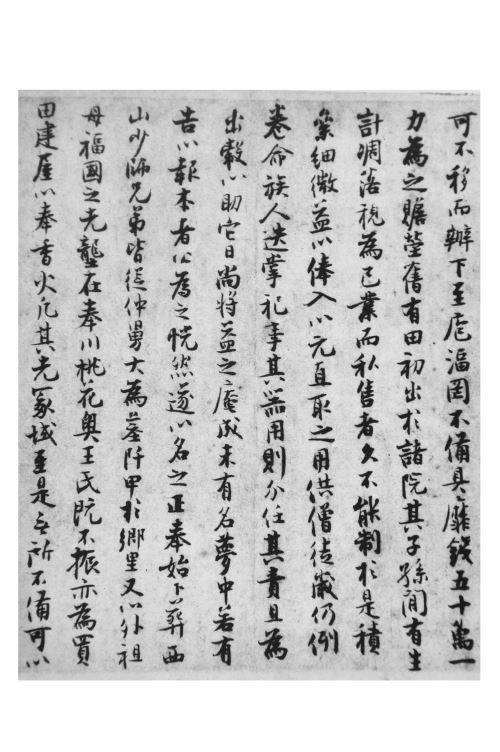 可不移而辦下至庖湢罔不備具靡錢五十萬一
力為之贍塋舊有田初出於諸院其子孫間有生
計凋落視為己業而私售者久不能制於是積
絫細微益以俸入以元直取之用供僧徒歲仍例
卷命族人迭掌祀事其器用則分任其責且為
出穀以助它日尚將益之庵成未有名夢中若有
告以報本者公為之恍然遂以名之正奉始卜葬西
山少師兄弟皆從仲舅大為墓阡甲於鄉里又以外祖
母福國之先壟在奉川桃花奧王氏既不振亦為買
田建屋以奉香火凡其先冢域至是無所不備可以